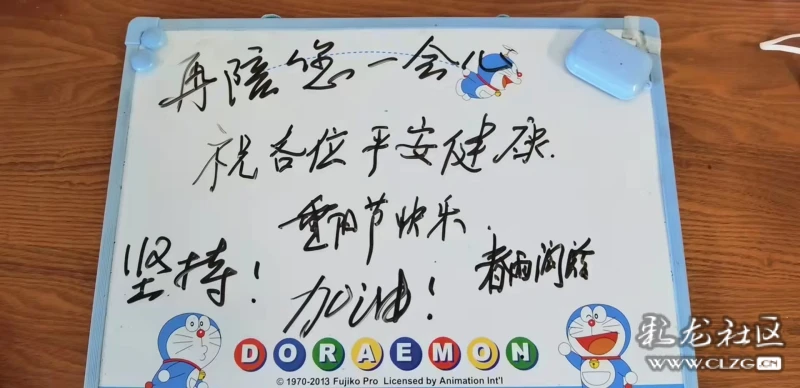 再陪您一会儿
祝各位平安健康.
重阳节快乐.
坚持!
加油!
春雨润龄
DORAEMON
© 1970-2013 Fujiko Pro Licensed by Animation Int'l
彩龙社区
WWW.CLZG.CN